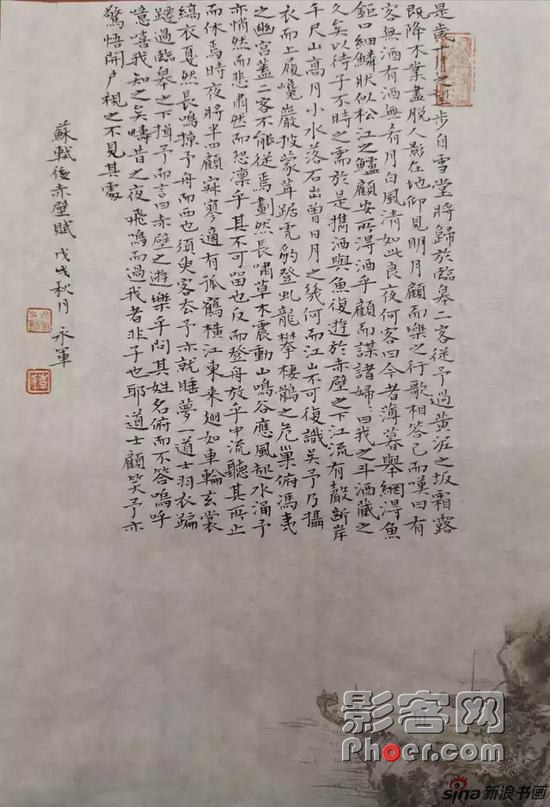 是歲十月之望步自雪堂將歸於臨皋二客從予過黃泥之坂霜露
既降木葉盡脫人影在地仰見明月顧而樂之行歌相答已而嘆曰有
客無酒有酒無肴月白風清如此良夜何客曰今者薄暮舉網得魚
鉅口細鱗狀似松江之鱸顧安所得酒乎顧而謀諸婦〻曰我之斗酒藏之
久矣以待子不時之需於是攜酒與魚復遊於赤壁之下江流有聲斷岸
千尺山高月小水落石出曾日月之幾何而江山不可復識矣予乃攝
衣而上履巉巖披蒙茸踞虎豹登虬龍攀棲鶻之危巢俯馮夷
之幽宮蓋二客不能從焉劃然長嘯草木震動山鳴谷應風起水涌予
亦悄然而悲肅然而恐凜乎其不可留也反而登舟放乎中流聽其所止
而休焉時夜將半四顧寂寥適有孤鶴橫江東來翅如車輪玄裳
縞衣戛然長鳴掠予舟而西也須臾客去予亦就睡夢一道士羽衣蹁
躚過臨皋之下揖予而言曰赤壁之遊樂乎問其姓名俯而不答嗚呼
噫嘻我知之矣疇昔之夜飛鳴而過我者非子也耶道士顧笑予亦
驚悟開戶視之不見其處
蘇軾後赤壁賦 戊戌秋月 永軍
影客网
Phoer.com
sina新浪书画